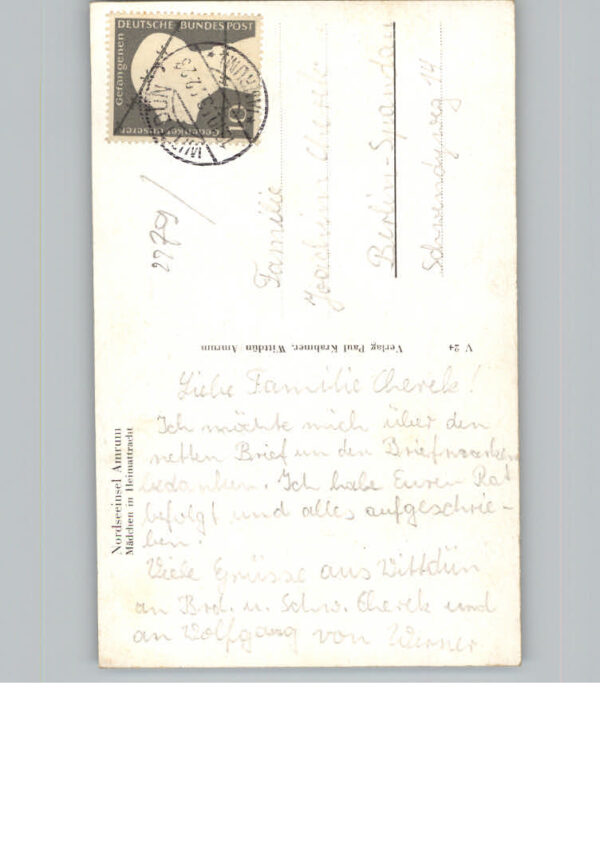 DEUTSCHE BUNDESPOST
Gedenket unserer
Gefangenen
10
WITTDÜN
(AMRUM)
2279
Familie
Joachim Cherek
Berlin-Spandau
Schwendyweg 14
V 24 Verlag Paul Krahmer, Wittdün Amrum
Nordseeinsel Amrum
Mädchen in Heimattracht
Liebe Familie Cherek!
Ich möchte mich über den
netten Brief un den Briefmarken
bedanken. Ich habe Euren Rat
befolgt und alles aufgeschrie-
ben.
Viele Grüsse aus Wittdün
an Brd. u. Schw. Cherek und
an Wolfgang von Werner